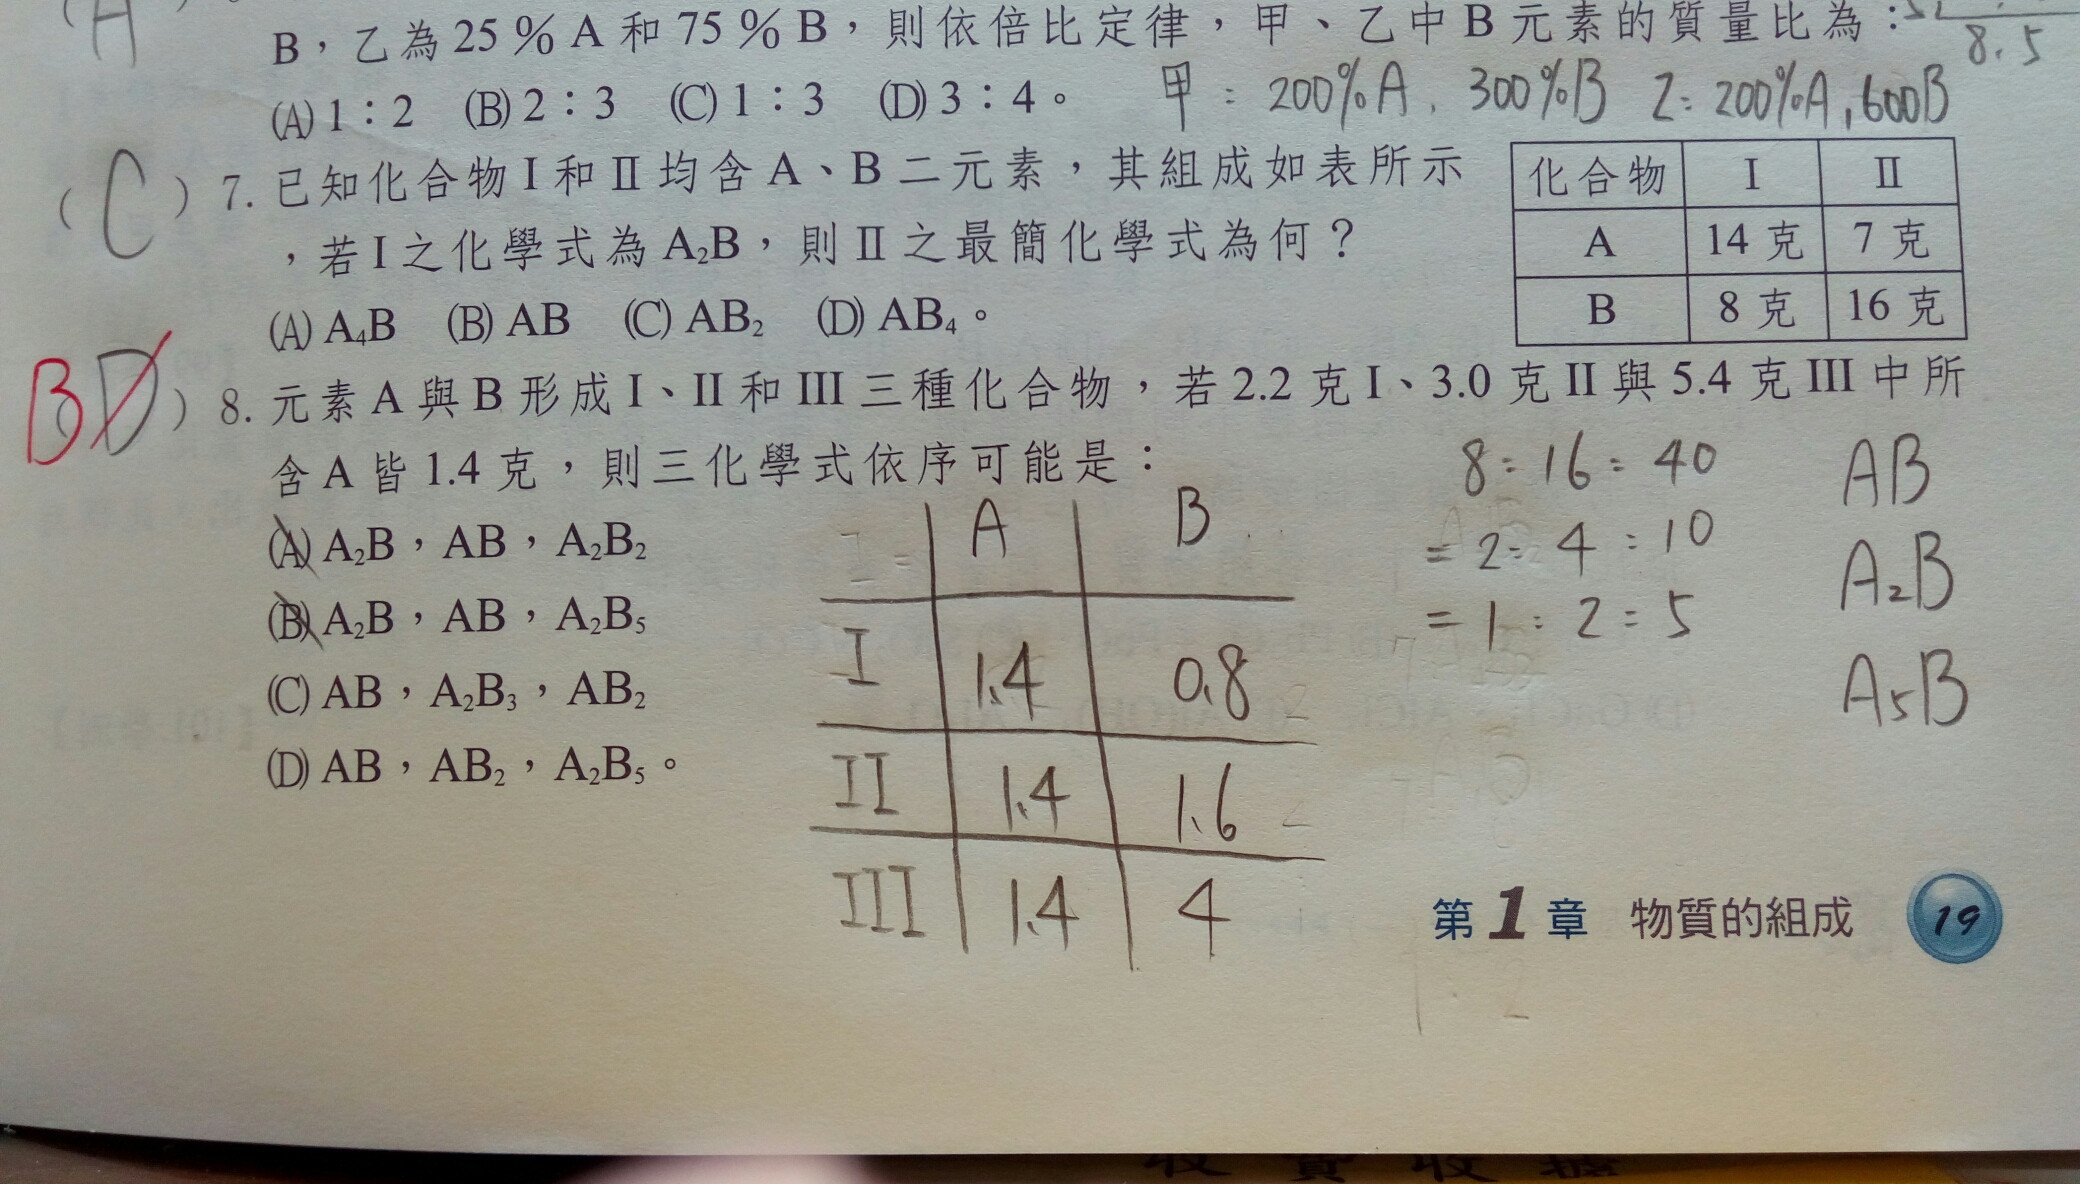 (A)
8.5
B，乙為 25 % A 和 75 % B，則依倍比定律，甲、乙中 B 元素的質量比為：
(A) 1：2 (B) 2：3 (C) 1：3 (D) 3：4。
甲：200%A, 300%B 乙: 200%A, 600B
(C) 7. 已知化合物 I 和 II 均含 A、B 二元素，其組成如表所示
，若 I 之化學式為 A₂B，則 II 之最簡化學式為何？
(A) A₄B (B) AB (C) AB₂ (D) AB₄。
化合物 I II
A 14 克 7 克
B 8 克 16 克
B D ) 8. 元素 A 與 B 形成 I、II 和 III 三種化合物，若 2.2 克 I、3.0 克 II 與 5.4 克 III 中所
含 A 皆 1.4 克，則三化學式依序可能是：
(A) A₂B，AB，A₂B₂
(B) A₂B，AB，A₂B₅
(C) AB，A₂B₃，AB₂
(D) AB，AB₂，A₂B₅。
A B
I 1.4 0.8
II 1.4 1.6
III 1.4 4
8:16:40
=2:4:10
=1:2:5
AB
A₂B
A₅B
第1章 物質的組成 19